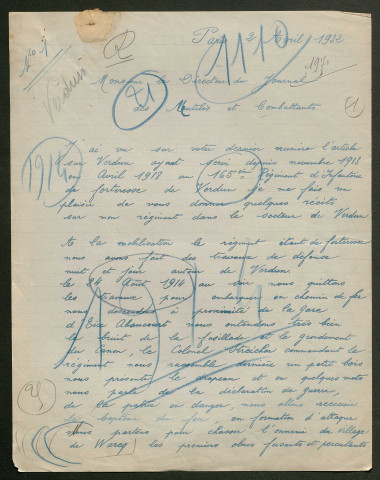 Paris 2 Avril 1932
1110
Monsieur le Directeur du Journal
des Mutilés et Combattants
Verdun
21
1914
j'ai vu sur votre dernier numéro l'article
sur Verdun ayant servi depuis novembre 1913
en Avril 1918 au 165ème Régiment d'Infanterie
de forteresse de Verdun je me fais un
plaisir de vous donner quelques récits
sur mon régiment dans le secteur de Verdun
A la mobilisation le régiment étant de forteresse
nous avons fait des travaux de défense
nuit et jour autour de Verdun
le 24 Août 1914 au soir nous quittons
les travaux pour embarquer en chemin de fer
nous descendons à proximité de la gare
d'Eix Abaucourt nous entendons très bien
le bruit de la fusillade et le grondement
du Canon, le Colonel commandant le
régiment nous rassemble derrière un petit bois
nous présente le drapeau et en quelques mots
nous parle de la déclaration de guerre,
de la patrie en danger, nous allons recevoir
le baptême du feu, en formation d'attaque
nous partons pour chasser l'ennemi du village
de Warcq les premiers obus fusants et percutants